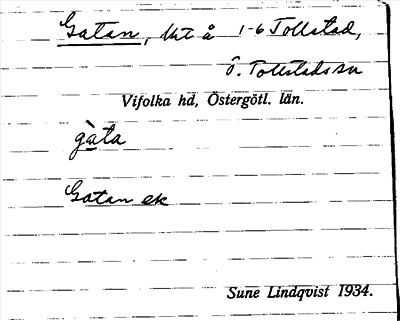 Gatan, Ut å 1-6 Tollstad,
Ö. Tollstads sn
Vifolka hd, Östergötl. län.
gàta
Gatan ek
Sune Lindqvist 1934.